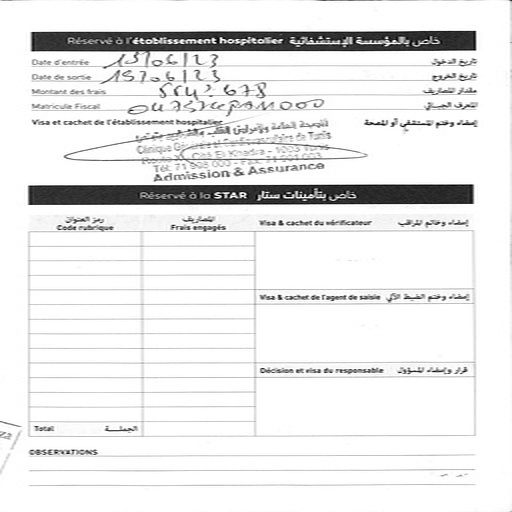 Réservé à l'établissement hospitalier خاص بالمؤسسة الإستشفائية
Date d'entrée 15/06/23 تاريخ الدخول
Date de sortie 15/06/23 تاريخ الخروج
Montant des frais 554,678 مقدار المصاريف
Matricule Fiscal المعرف الجبائي
Visa et cachet de l'établissement hospitalier إمضاء وختم المستشفى أو المصحة
المصحة العامة وأمراض القلب والشرايين بتونس
Clinique Générale et Cardiovasculaire de Tunis
Cité El Khadra - 1003 Tunis
Tél: 71 908 000 - Fax: 71 901 003
Admission & Assurance
Réservé à la STAR خاص بتأمينات ستار
رمز العنوان المصاريف
Code rubrique Frais engagés Visa & cachet du vérificateur إمضاء وخاتم المراقب
Visa & cachet de l'agent de saisie إمضاء وختم الضبط الآلي
Décision et visa du responsable قرار وإمضاء المسؤول
Total الجملـــة
OBSERVATIONS